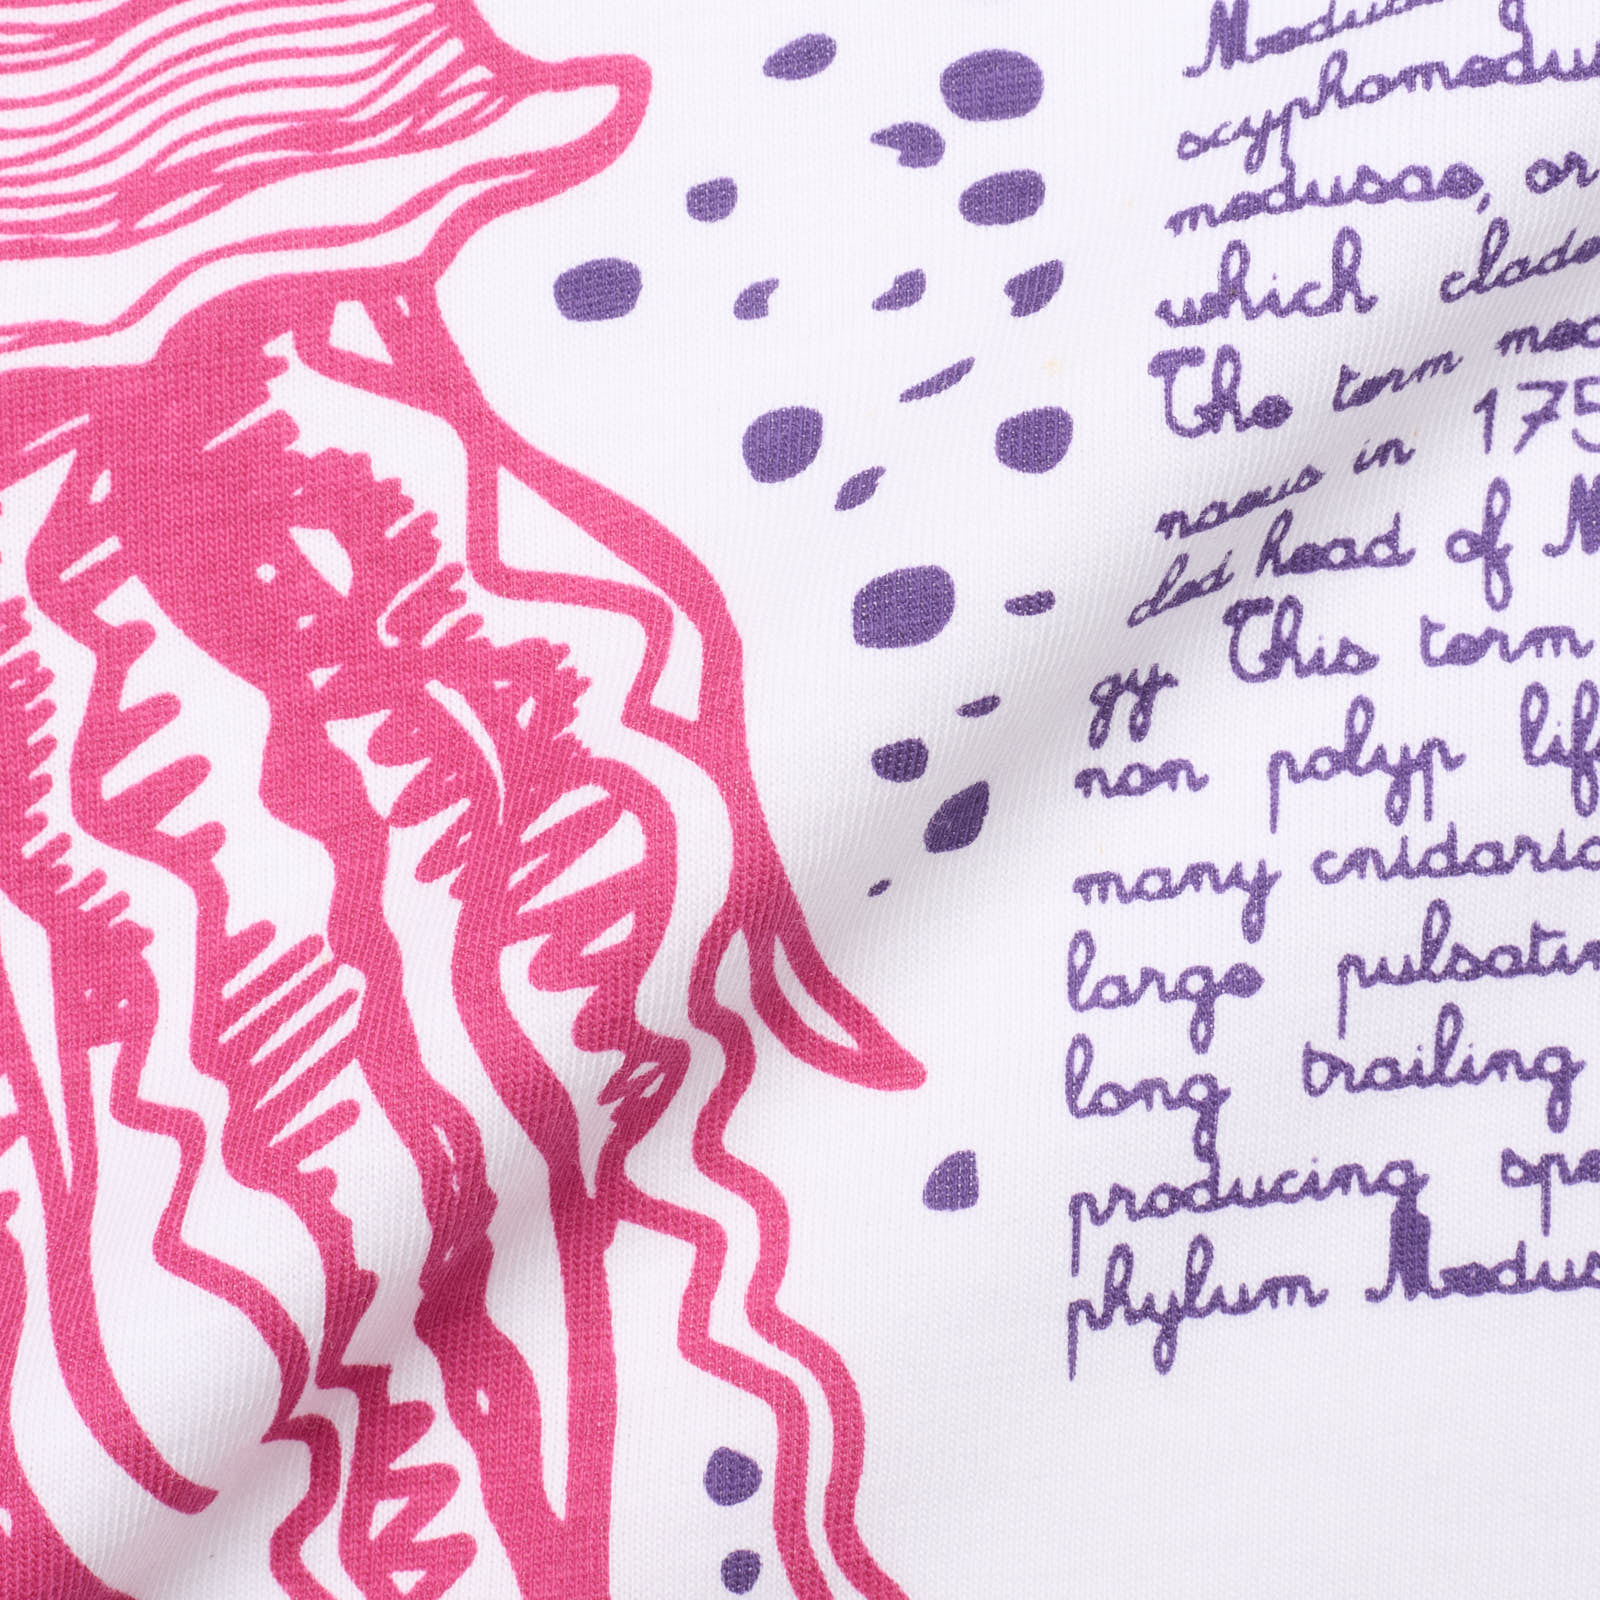 scyphomedus
medusae, or
which clade
The term med
naeus in 175
ded head of M
gy. This term
non polyp life
many cnidaria
large pulsatin
long trailing
producing spe
phylum Medus